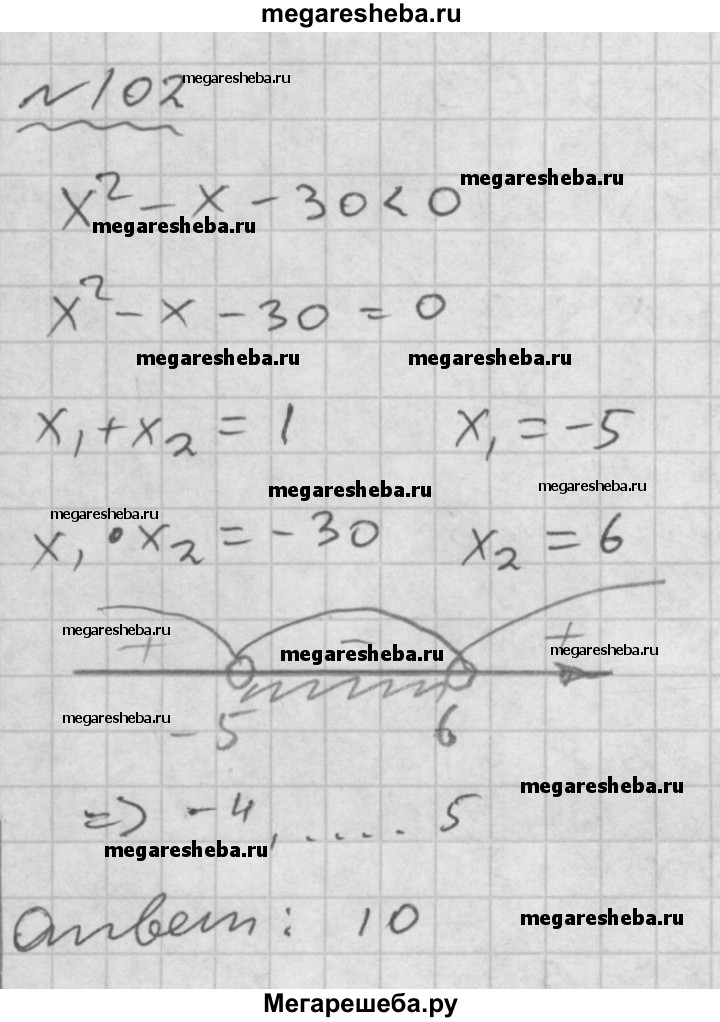 megaresheba.ru
№ 102 megaresheba.ru
x² - x - 30 < 0 megaresheba.ru
megaresheba.ru
x² - x - 30 = 0
megaresheba.ru megaresheba.ru
x₁ + x₂ = 1 x₁ = -5
megaresheba.ru megaresheba.ru
megaresheba.ru
x₁ • x₂ = -30 x₂ = 6
megaresheba.ru
+ - +
megaresheba.ru megaresheba.ru
megaresheba.ru
-5 6
megaresheba.ru
=> -4, ..... 5
megaresheba.ru
ответ: 10 megaresheba.ru
Мегарешеба.ру